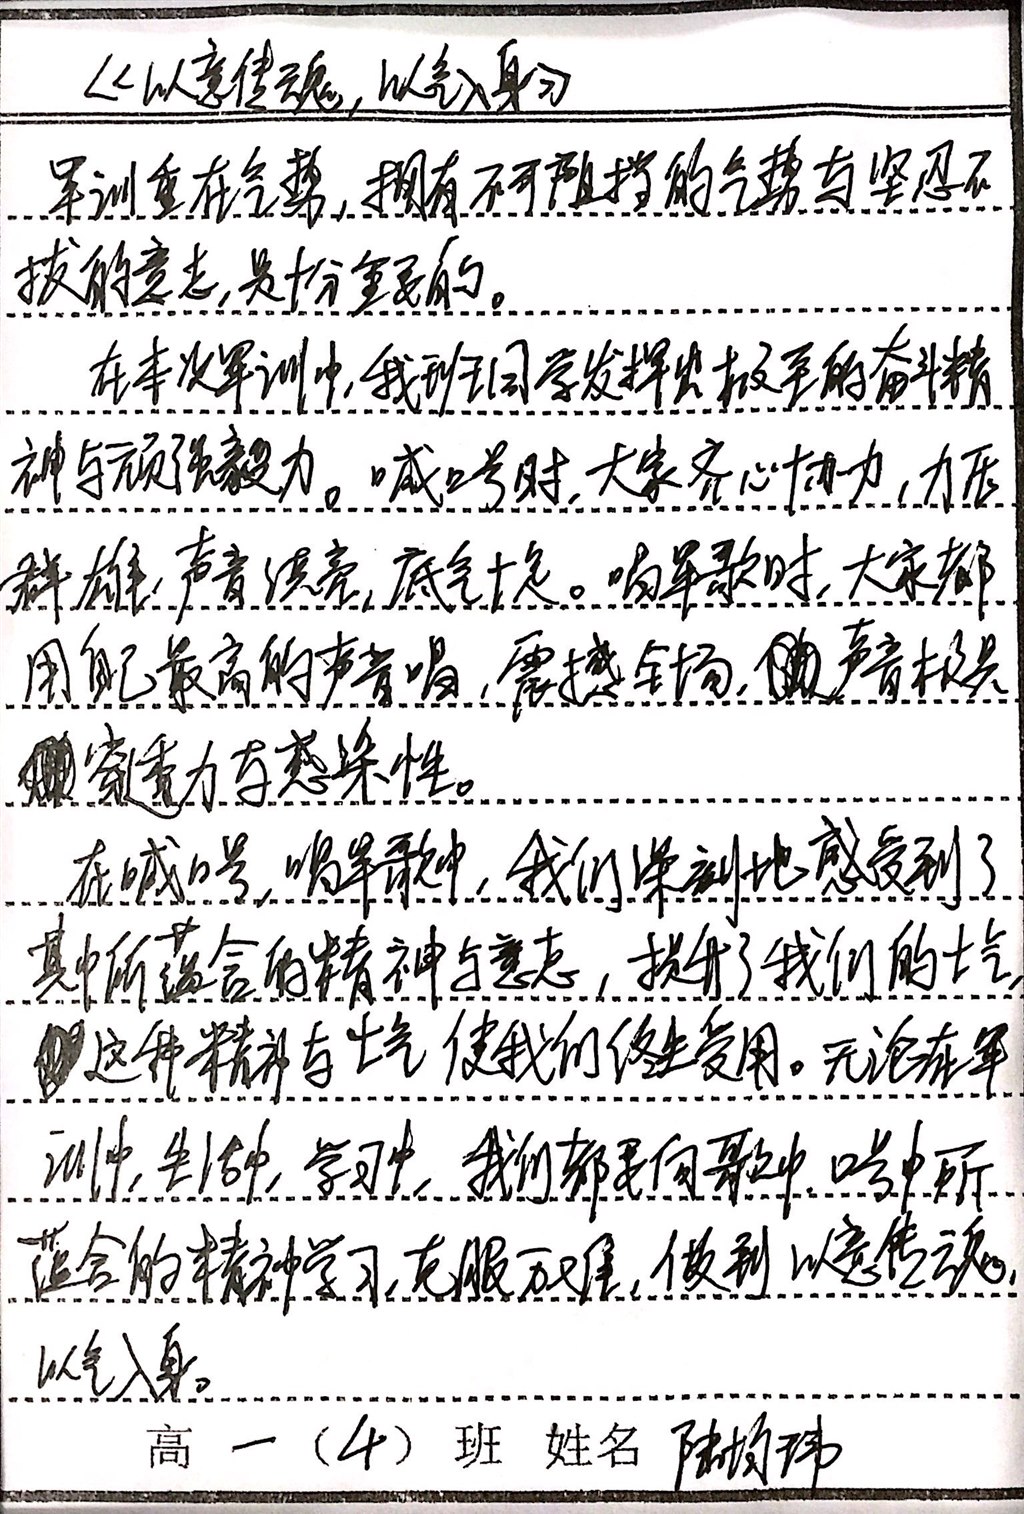 《以意传魂，以气入身》
军训重在气势，拥有不可阻挡的气势与坚忍不
拔的意志，是十分重要的。
在本次军训中，我班同学发挥出极至的奋斗精
神与顽强毅力。喊口号时，大家齐心协力，力压
群雄，声音洪亮，底气十足。唱军歌时，大家都
用自己最高的声音唱，震撼全场，声音极具
穿透力与感染性。
在喊口号，唱军歌中，我们深刻地感受到了
其中所蕴含的精神与意志，提升了我们的士气，
这种精神与士气使我们终生受用。无论在军
训中，生活中，学习中，我们都要向歌中，口号中所
蕴含的精神学习，克服万难，做到以意传魂，
以气入身。
高一（4）班 姓名 陆均玮